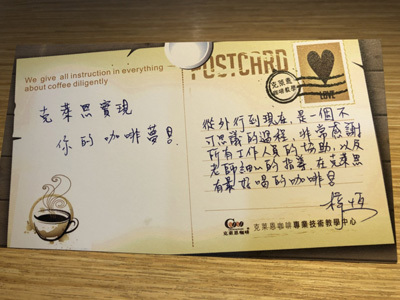 We give all instruction in everything
about coffee diligently
POSTCARD
LOVE
克萊恩實現
你的咖啡夢!
從外行到現在,是一個不
可思議的過程,非常感謝
所有工作人員的協助,以及
老師細心的指導,在克萊恩
有最好喝的咖啡!
克萊恩咖啡
克萊恩咖啡專業技術教學中心